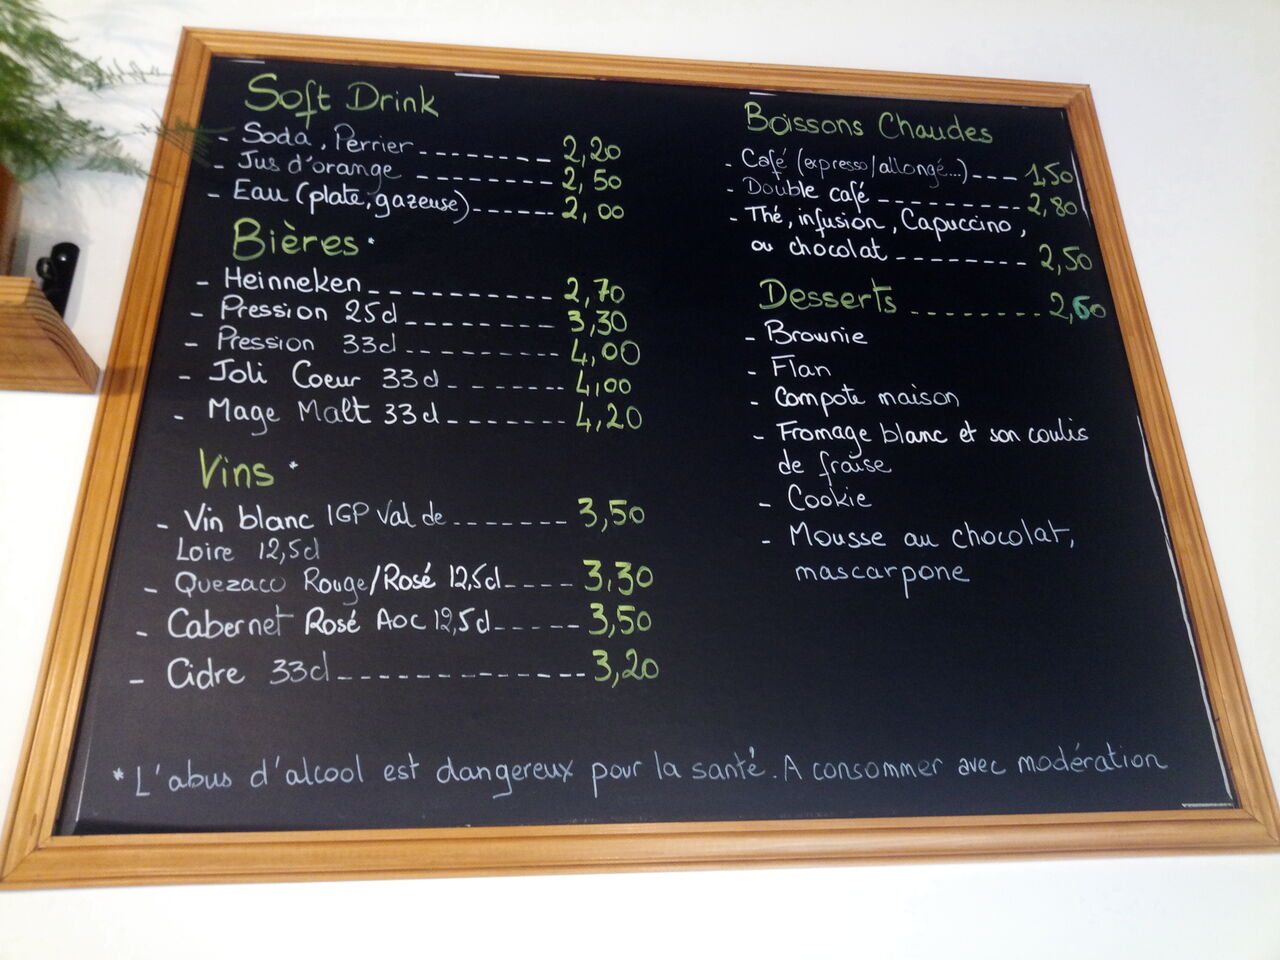 Soft Drink
- Soda, Perrier -------- 2,20
- Jus d'orange -------- 2,50
- Eau (plate, gazeuse) ------ 2,00
Bières *
- Heinneken ---------- 2,70
- Pression 25cl --------- 3,30
- Pression 33cl --------- 4,00
- Joli Coeur 33cl ------- 4,00
- Mage Malt 33cl ------- 4,20
Vins *
- Vin blanc IGP Val de ------- 3,50
Loire 12,5cl
- Quezaco Rouge/Rosé 12,5cl ---- 3,30
- Cabernet Rosé AOC 12,5cl ----- 3,50
- Cidre 33cl ------------- 3,20
Boissons Chaudes
- Café (expresso/allongé....) --- 1,50
- Double café --------- 2,80
- Thé, infusion, Capuccino,
ou chocolat -------- 2,50
Desserts ........ 2,60
- Brownie
- Flan
- Compote maison
- Fromage blanc et son coulis
de fraise
- Cookie
- Mousse au chocolat,
mascarpone
* L'abus d'alcool est dangereux pour la santé. A consommer avec modération